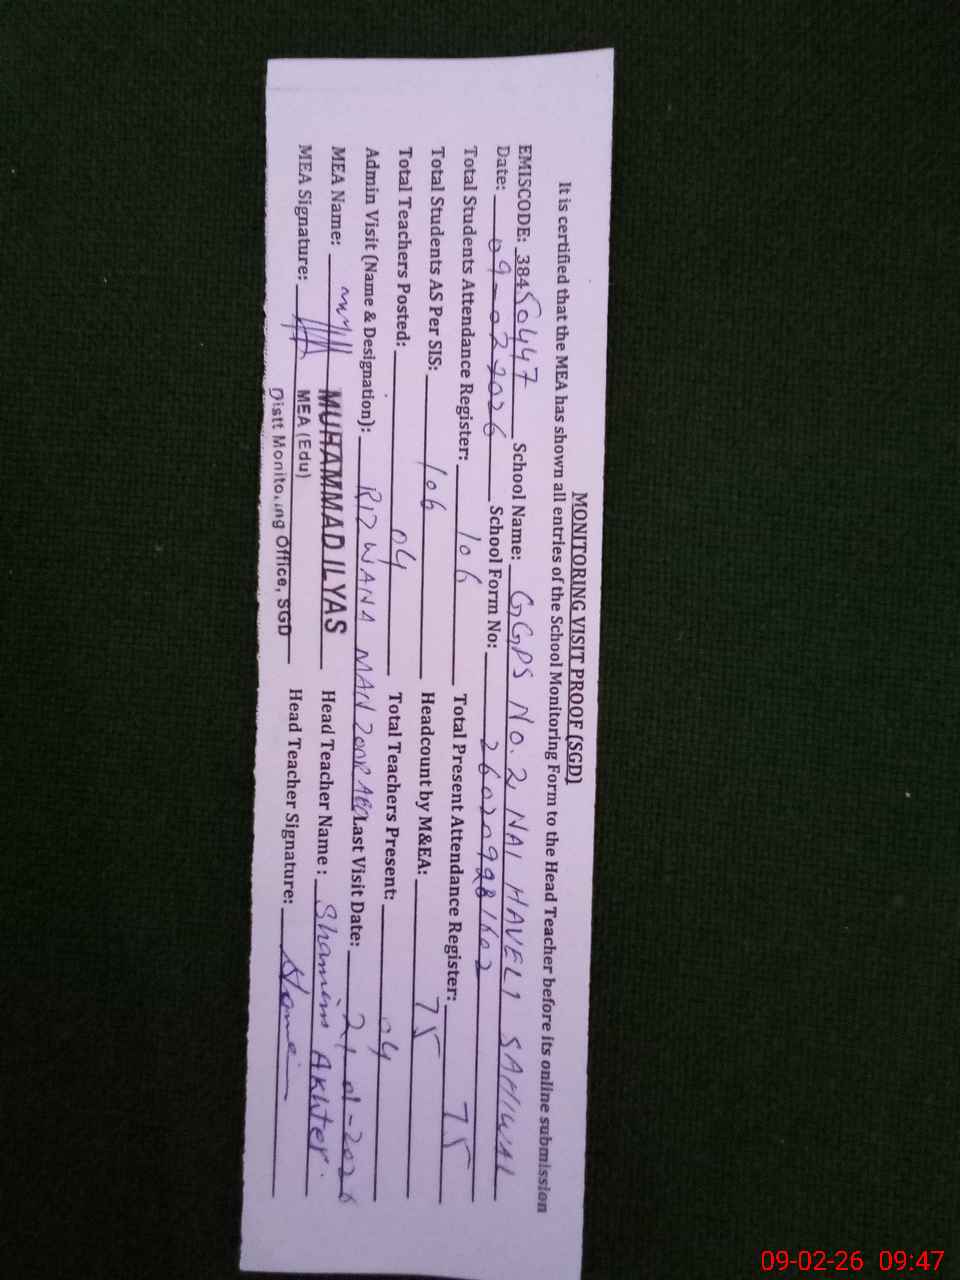 MONITORING VISIT PROOF (SGD)
It is certified that the MEA has shown all entries of the School Monitoring Form to the Head Teacher before its online submission
EMISCODE: 38450447 School Name: GGPS NO. 2 NAI HAVELI SAHIWAL
Date: 09-02-2026 School Form No:
Total Students Attendance Register: 106 Total Present Attendance Register: 75
Total Students AS Per SIS: 106 Headcount by M&EA: 75
Total Teachers Posted: 04 Total Teachers Present: 04
Admin Visit (Name & Designation): RIZWANA MANZOOR Last Visit Date: 21-01-2026
MEA Name: MUHAMMAD ILYAS Head Teacher Name : Shamim Akhter.
MEA Signature: MEA (Edu) Head Teacher Signature:
Distt Monitoring Office, SGD
09-02-26 09:47